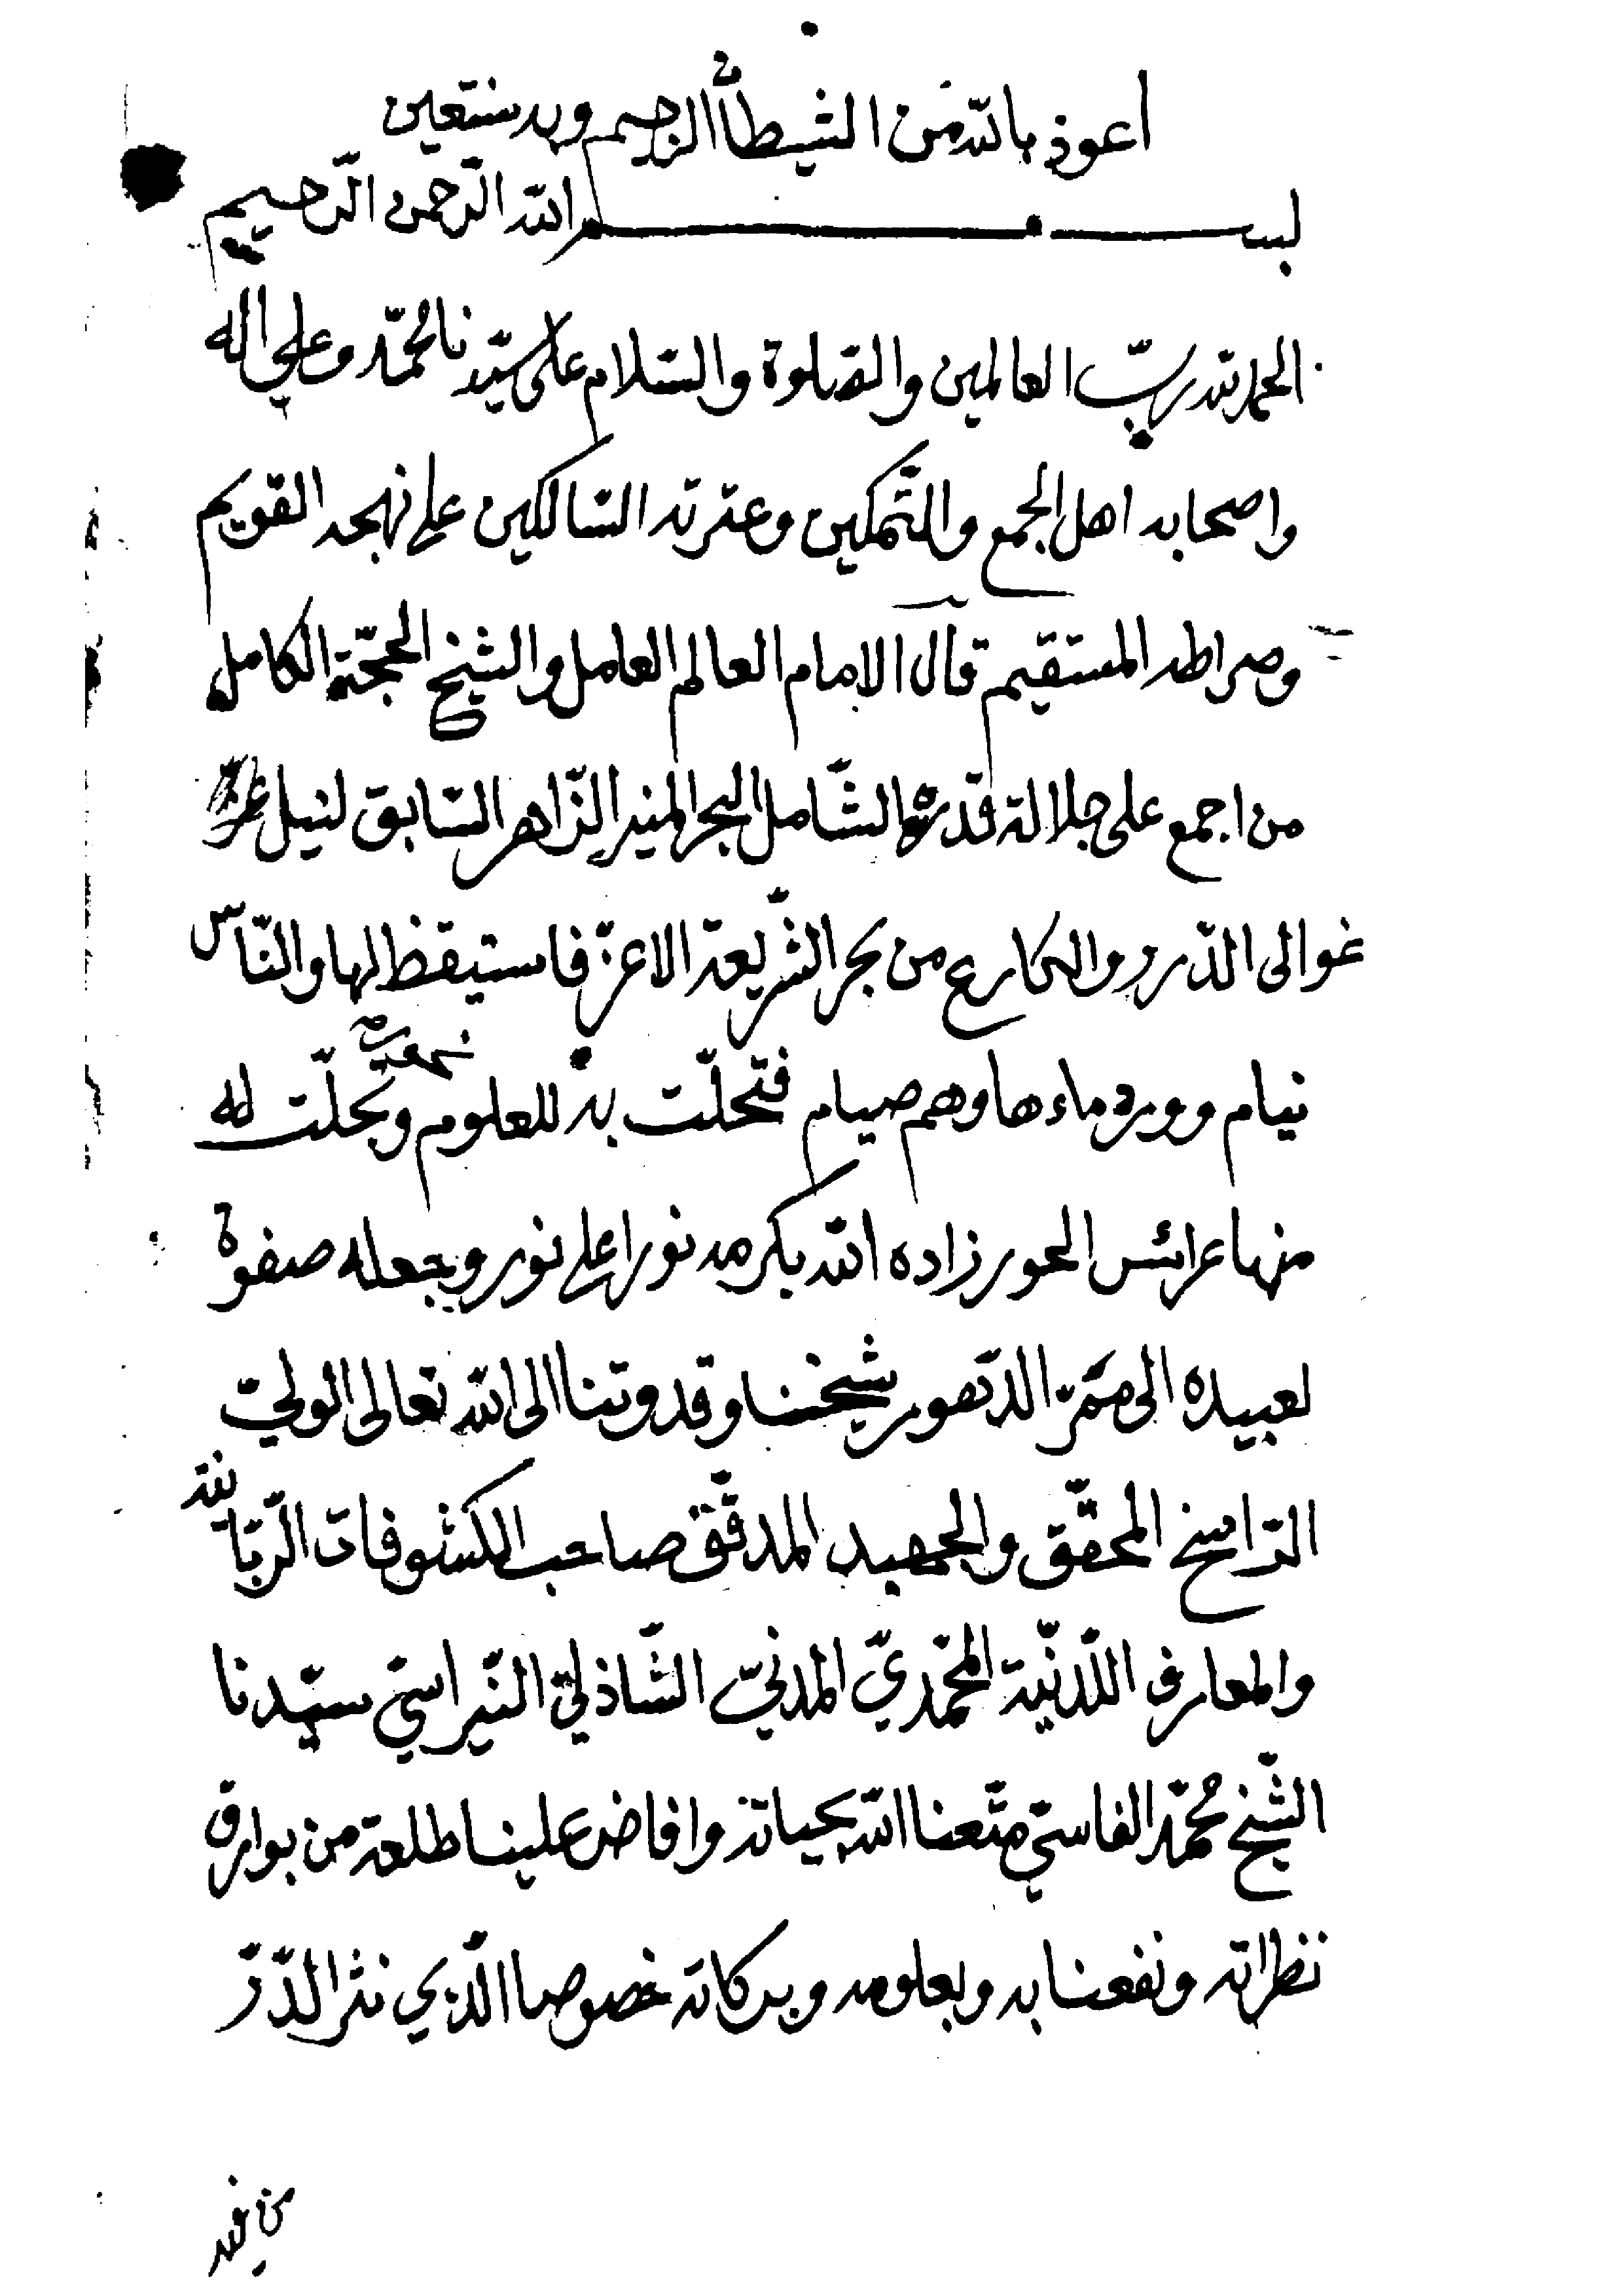 اعوذ بالله من الشيطان الرجيم وبه نستعين
بسم الله الرّحمن الرّحيم
الحمد لله ربّ العالمين والصّلوة والسّلام على سيّدنا محمّد وعلى اله
واصحابه اهل الجمع والتّمكين وعترته السّالكين على نهجه القويم
وصراطه المستقيم قال الامام العالم العامل والشيخ الحجّة الكامل
من اجمع على جلالة قدره الشّامل البحر المنير الزّاهر السّابق لنيل
غوالى الدّرر والكارع من بحر الشّريعة الاغرّ فاستيقظ لها والنّاس
نيام وورد ماءها وهم صيام فتحلّت به للعلوم نحور وتجلّت له
منها عرائس الحور زاده الله بكرمه نورا على نور وجعله صفوة
لعبيده الى ممرّ الدّهور شيخنا وقدوتنا الى الله تعالى الوليّ
الرّاسخ المحقّق والجهبد المدقّق صاحب الكشوفات الرّبّانية
والمعارف اللّدنّيّة المحمّديّ المدنيّ الشّاذليّ النّبراسيّ سيّدنا
الشّيخ محمّد الفاسيّ متّعنا الله بحياته وافاض علينا طلعة من بوارق
نظراته ونفعنا به وبعلومه وبركاته خصوصا الّذي نثر الدّرّ